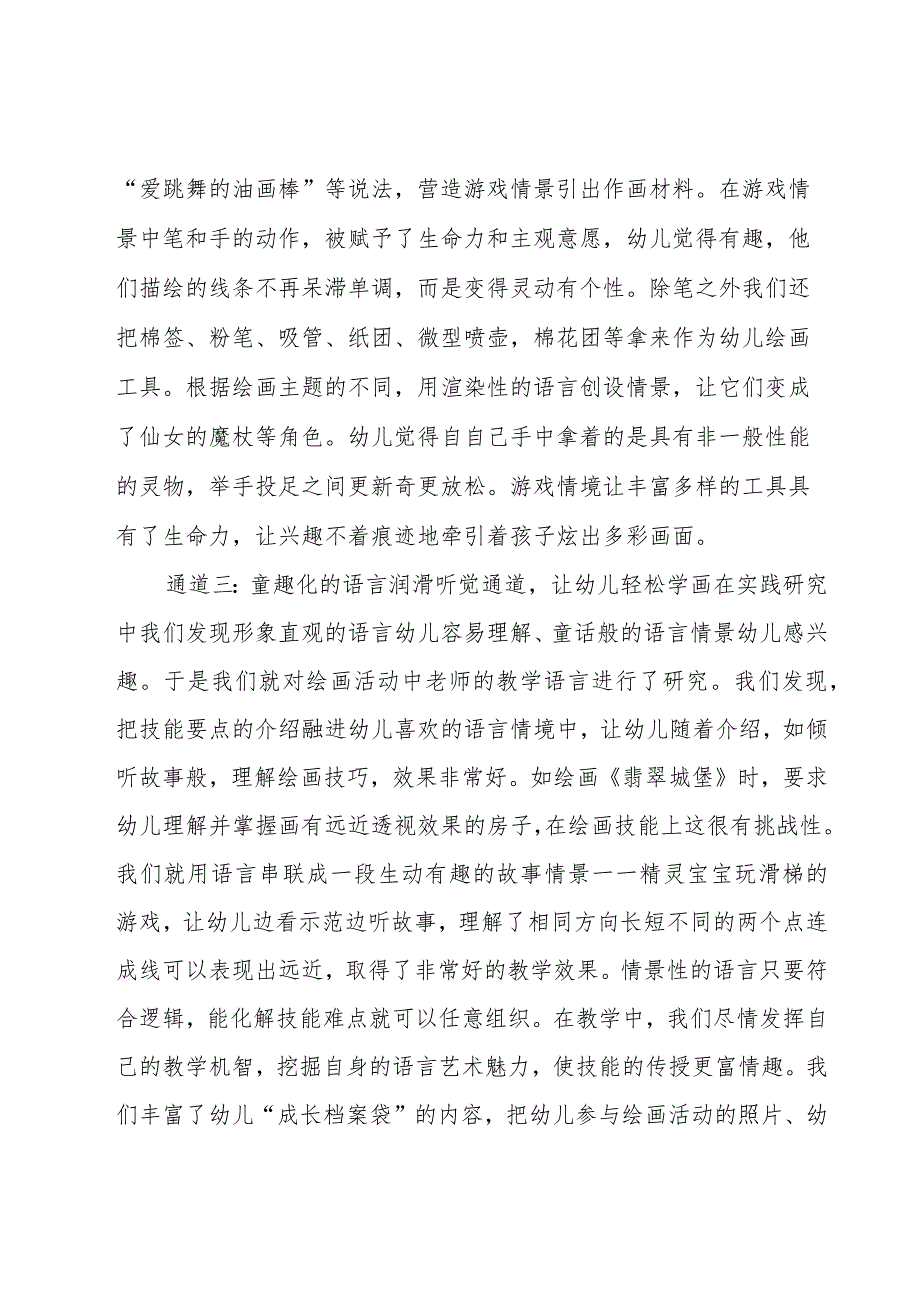 “爱跳舞的油画棒”等说法，营造游戏情景引出作画材料。在游戏情
景中笔和手的动作，被赋予了生命力和主观意愿，幼儿觉得有趣，他
们描绘的线条不再呆滞单调，而是变得灵动有个性。除笔之外我们还
把棉签、粉笔、吸管、纸团、微型喷壶，棉花团等拿来作为幼儿绘画
工具。根据绘画主题的不同，用渲染性的语言创设情景，让它们变成
了仙女的魔杖等角色。幼儿觉得自自己手中拿着的是具有非一般性能
的灵物，举手投足之间更新奇更放松。游戏情境让丰富多样的工具具
有了生命力，让兴趣不着痕迹地牵引着孩子炫出多彩画面。
通道三：童趣化的语言润滑听觉通道，让幼儿轻松学画在实践研究
中我们发现形象直观的语言幼儿容易理解、童话般的语言情景幼儿感兴
趣。于是我们就对绘画活动中老师的教学语言进行了研究。我们发现，
把技能要点的介绍融进幼儿喜欢的语言情境中，让幼儿随着介绍，如倾
听故事般，理解绘画技巧，效果非常好。如绘画《翡翠城堡》时，要求
幼儿理解并掌握画有远近透视效果的房子，在绘画技能上这很有挑战性。
我们就用语言串联成一段生动有趣的故事情景一一精灵宝宝玩滑梯的
游戏，让幼儿边看示范边听故事，理解了相同方向长短不同的两个点连
成线可以表现出远近，取得了非常好的教学效果。情景性的语言只要符
合逻辑，能化解技能难点就可以任意组织。在教学中，我们尽情发挥自
己的教学机智，挖掘自身的语言艺术魅力，使技能的传授更富情趣。我
们丰富了幼儿“成长档案袋”的内容，把幼儿参与绘画活动的照片、幼